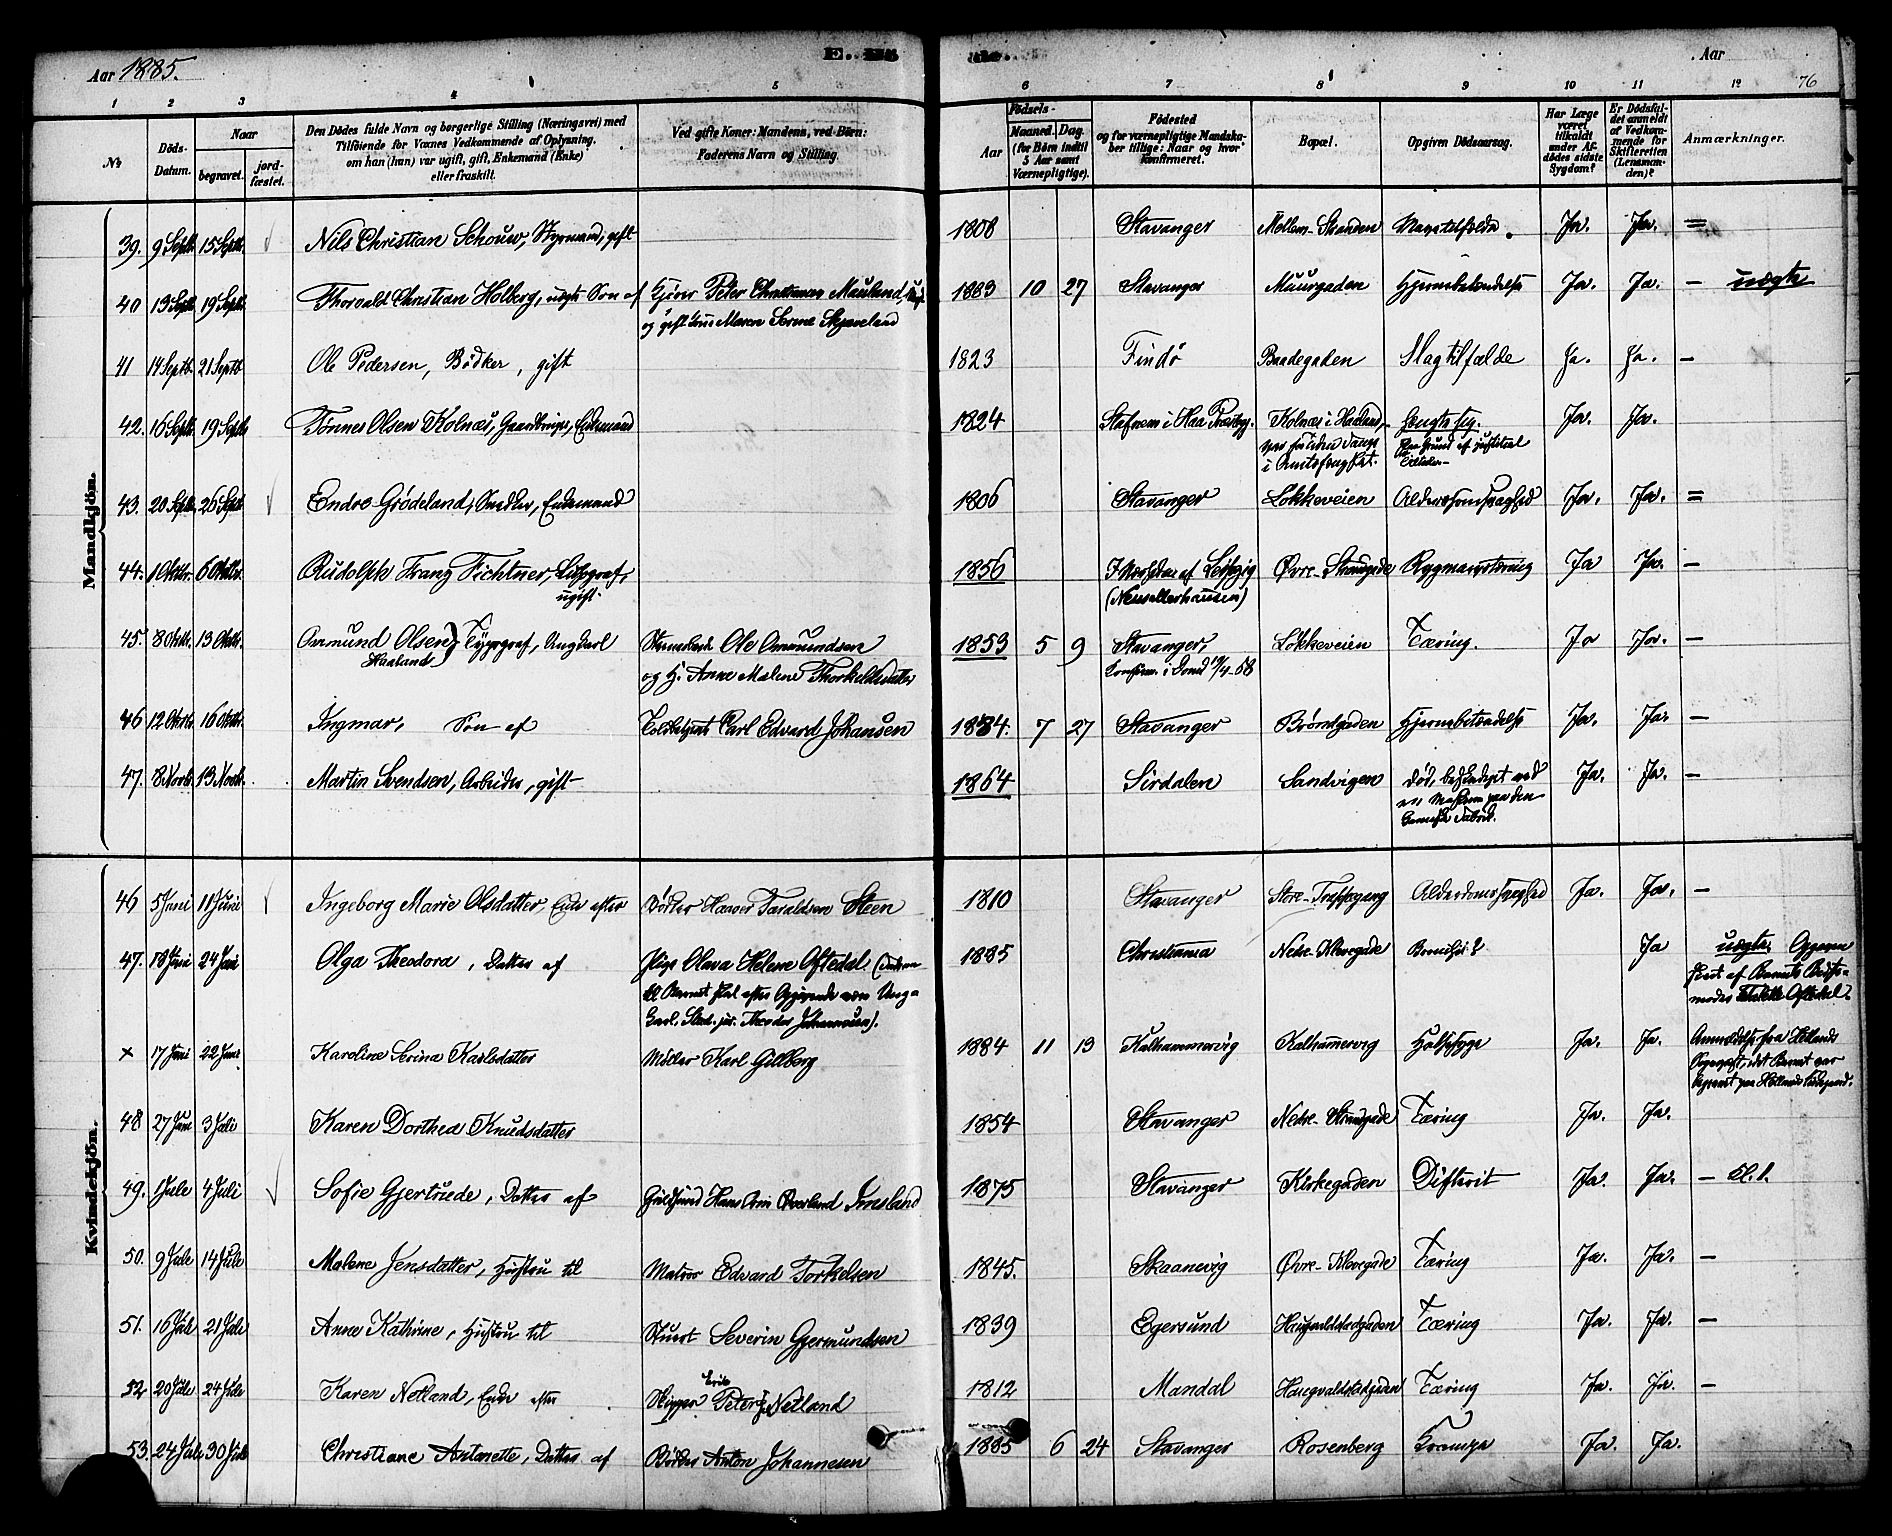 Aar 1885.
Aar
76
1 2 3 4 5 6 7 8 9 10 11 12
№
Döds-Datum.
Naar
begravet.
jord-fæstet.
Den Dödes fulde Navn og borgerlige Stilling (Næringsvei) med
Tilföiende for Voxnes Vedkommende af Oplysning,
om han (hun) var ugift, gift, Enkemand (Enke)
eller fraskilt.
Ved gifte Koner: Mandens, ved Börn:
Faderens Navn og Stilling.
Födsels-
Aar
Maaned. Dag.
(for Börn indtil
5 Aar samt
Værnepligtige).
Födested
og for værnepligtige Mandskaber tillige: Naar og hvor
konfirmeret.
Bopæl.
Opgiven Dödsaarsag.
Har Læge
været
tilkaldt
under Afdödes sidste
Sygdom?
Er Dödsfaldet anmeldt
af Vedkommende for
Skifteretten
(Lensmanden)?
Anmærkninger.
Mandkjön.
39. 9 Septb. 15 Septb. Nils Christian Schouw, Styrmand, gift 1808 Stavanger Mellem-Stranden Ja. Ja. =
40 13 Septb. 19 Septb. Thorvald Christian Holberg, uægte Søn af Peter Christiansen Mauland, 1883 10 27 Stavanger Muurgaden Hjernebetændelse Ja. Ja. – uægte
og gift Maren Serine Skjæveland
41 14 Septb. 21 Septb. Ole Pedersen, Bødker, gift 1823 Findø Baadegaden Slagtilfælde Ja. Ja. –
42. 16 Septb. 19 Septb. Tønnes Olsen Kolnæs, Gaardbruger, Enkemand 1824 i Haa Præstegj. Kolnæs i Haaland, hængte sig. Ja. Ja.
43. 20 Septb. 26 Septb. Endre Grødeland, Snedker, Enkemand 1806 Stavanger Løkkeveien Alderdomssvaghed Ja. Ja. =
44. 1 Oktbr. 6 Oktbr. Rudolph Franz Fichtner, Lithograf, 1856 I Nærheden af Leipzig Øvre-Strandgade Rygmarvstæring Ja Ja. –
ugift. (Neusellerhausen)
45. 8 Oktbr. 13 Oktbr. Ommund Olsen Typograf, Ungkarl Ole Ommundsen 1853 5 9 Stavanger, Løkkeveien Tæring. Ja Ja. –
Haaland og H. Anne Malene Thorkeldsdatter
46 12 Oktbr. 16 Oktbr. Ingmar, Søn af Toldbetjent Carl Edvard Johansen 1884. 7 27 Stavanger Brøndgaden Hjernebetændelse Ja. Ja. –
47. 8 Novb. 13 Novb. Martin Svendsen, Arbeider, gift 1864 Sirdalen Sandvigen Død, beskadiget ved Ja. Ja. –
en Maskine paa den
kemiske Fabrik.
Kvindekjön.
46 5 Juni 11 Juni Ingeborg Marie Olsdatter, Enke efter Taraldsen Steen 1810 Stavanger Store-Trappegang Alderdomssvaghed Ja. Ja. –
47. 18 Juni 24 Juni Olga Theodora, Datter af Pige Olava Helene Oftedal. (Faderen 1885 Christiania Nedre-Klevegade Ja uægte.
til Barnet skal efter Opgivende være Ungkarl, Stud. jur. Theodor Johannesen).
× 17 Juni 22 Juni Karoline Serina Karlsdatter Møller Karl Gillberg 1884 11 13 Kalhammervig Kalhammervig Halssyge Ja. Ja. Anmeldelse fra Hetlands
48 27 Juni 3 Juli Karen Dorthea Knudsdatter 1854 Stavanger Nedre-Strandgade Tæring Ja. Ja.
49. 1 Juli 4 Juli Sofie Gjertrude, Datter af Guldsmed Hans Overland 1875 Stavanger Kirkegaden Difterit Ja. Ja. – Kl. 1.
50. 9 Juli 14 Juli Malene Jensdatter, Hustru til Matros Edvard Torkelsen 1845. Skaanevig Øvre-Klevegade Tæring Ja. Ja. –
51. 16 Juli 21 Juli Anna Kathrine, Hustru til Stuert Severin Gjermundsen 1839 Egersund Haugvaldstadgaden Tæring Ja. Ja. –
52 20 Juli 24 Juli Karen Netland, Enke efter Skipper Peter Erik Netland 1812 Mandal Haugvaldstadgaden Tæring Ja. Ja. –
53. 24 Juli 30 Juli Christiane Antonette, Datter af Bødker Anton Johannesen 1885 6 24 Stavanger Rosenberg Krampe Ja. Ja.